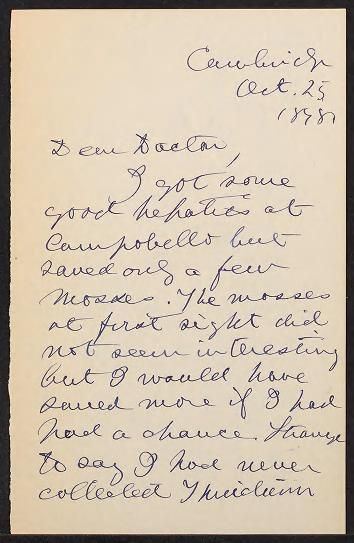 Cambridge
Oct. 25
1898
Dear Doctor,
I got some
good hepatics at
Campobello but
saved only a few
mosses. The mosses
at first sight did
not seem interesting
but I would have
saved more if I had
had a chance. Strange
to say I had never
collected Thuidium